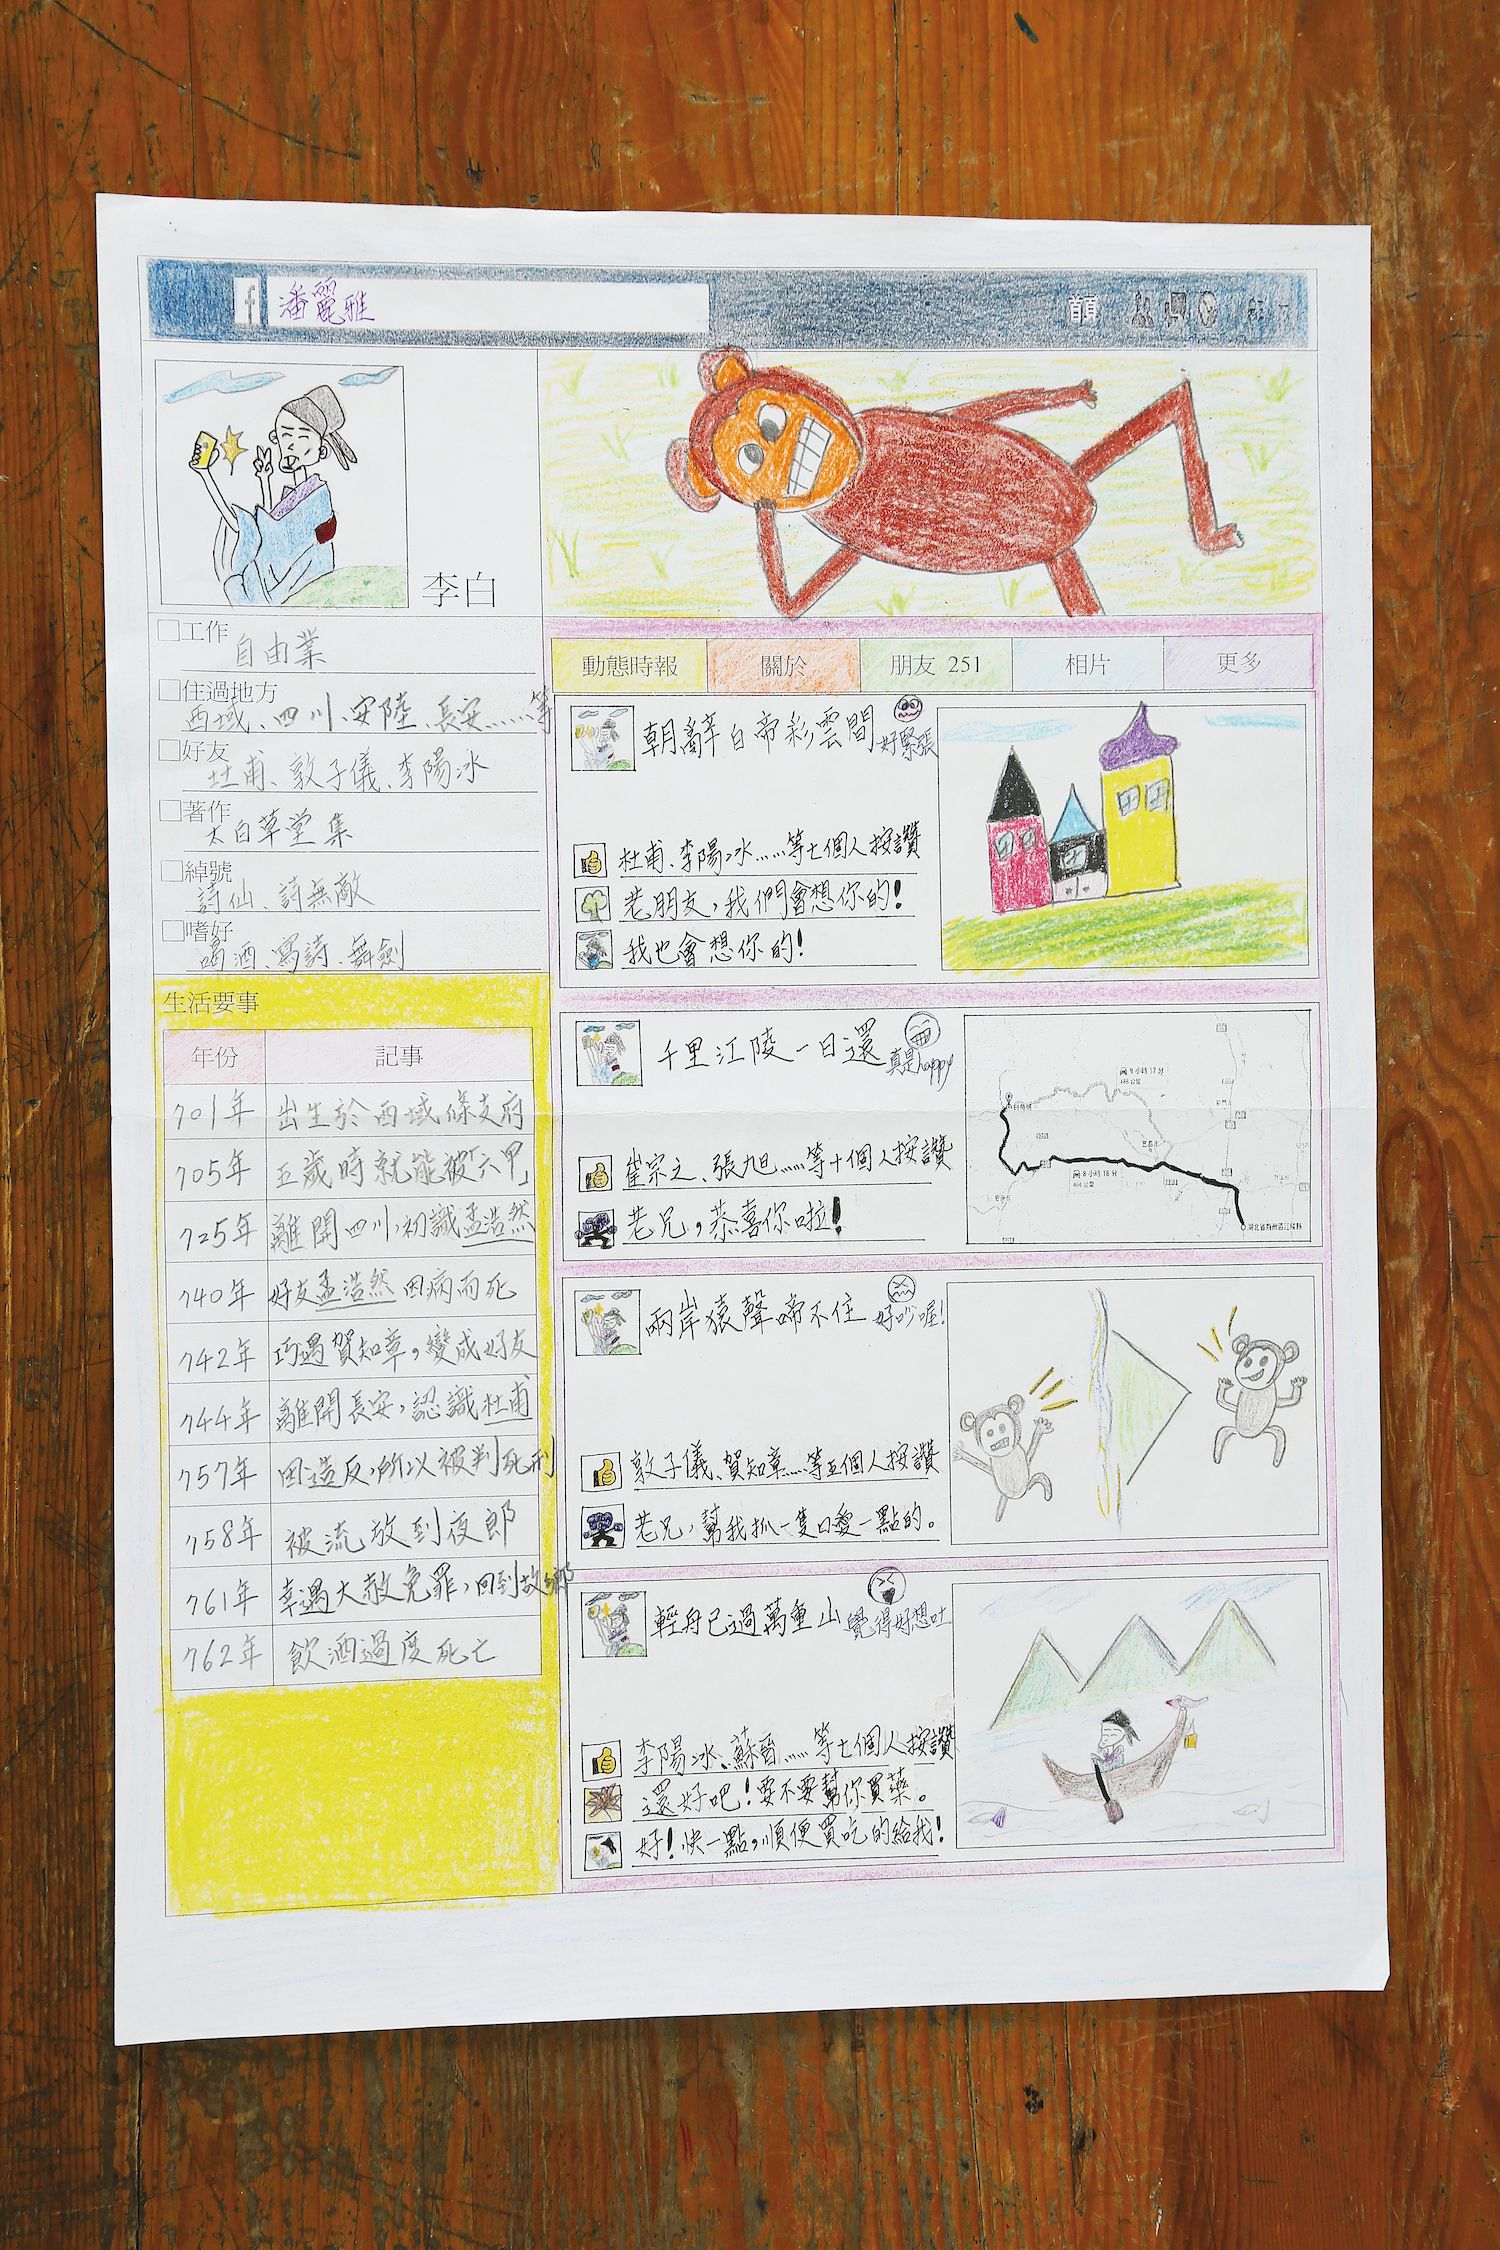 f 潘麗雅
首頁
李白
□工作
自由業
□住過地方
西域、四川、安陸、長安……等
□好友
杜甫、敦子儀、李陽冰
□著作
太白草堂集
□綽號
詩仙、詩無敵
□嗜好
喝酒、寫詩、舞劍
生活要事
年份 記事
701年 出生於西域條支府
705年 五歲時就能被「六甲」
725年 離開四川,初識孟浩然
740年 好友孟浩然因病而死
742年 巧遇賀知章,變成好友
744年 離開長安,認識杜甫
757年 因造反,所以被判死刑
758年 被流放到夜郎
761年 幸遇大赦免罪,回到故鄉
762年 飲酒過度死亡
動態時報 關於 朋友 251 相片 更多
朝辭白帝彩雲間 好緊張
杜甫、李陽冰……等七個人按讚
老朋友,我們會想你的!
我也會想你的!
千里江陵一日還 真是happy
崔宗之、張旭……等十個人按讚
老兄,恭喜你啦!
9 小時 17 分
8 小時 18 分
兩岸猿聲啼不住 好吵喔!
敦子儀、賀知章……等五個人按讚
老兄,幫我抓一隻口愛一點的。
輕舟已過萬重山 覺得好想吐
李陽冰、蘇晉……等七個人按讚
還好吧!要不要幫你買藥。
好!快一點,順便買吃的給我!